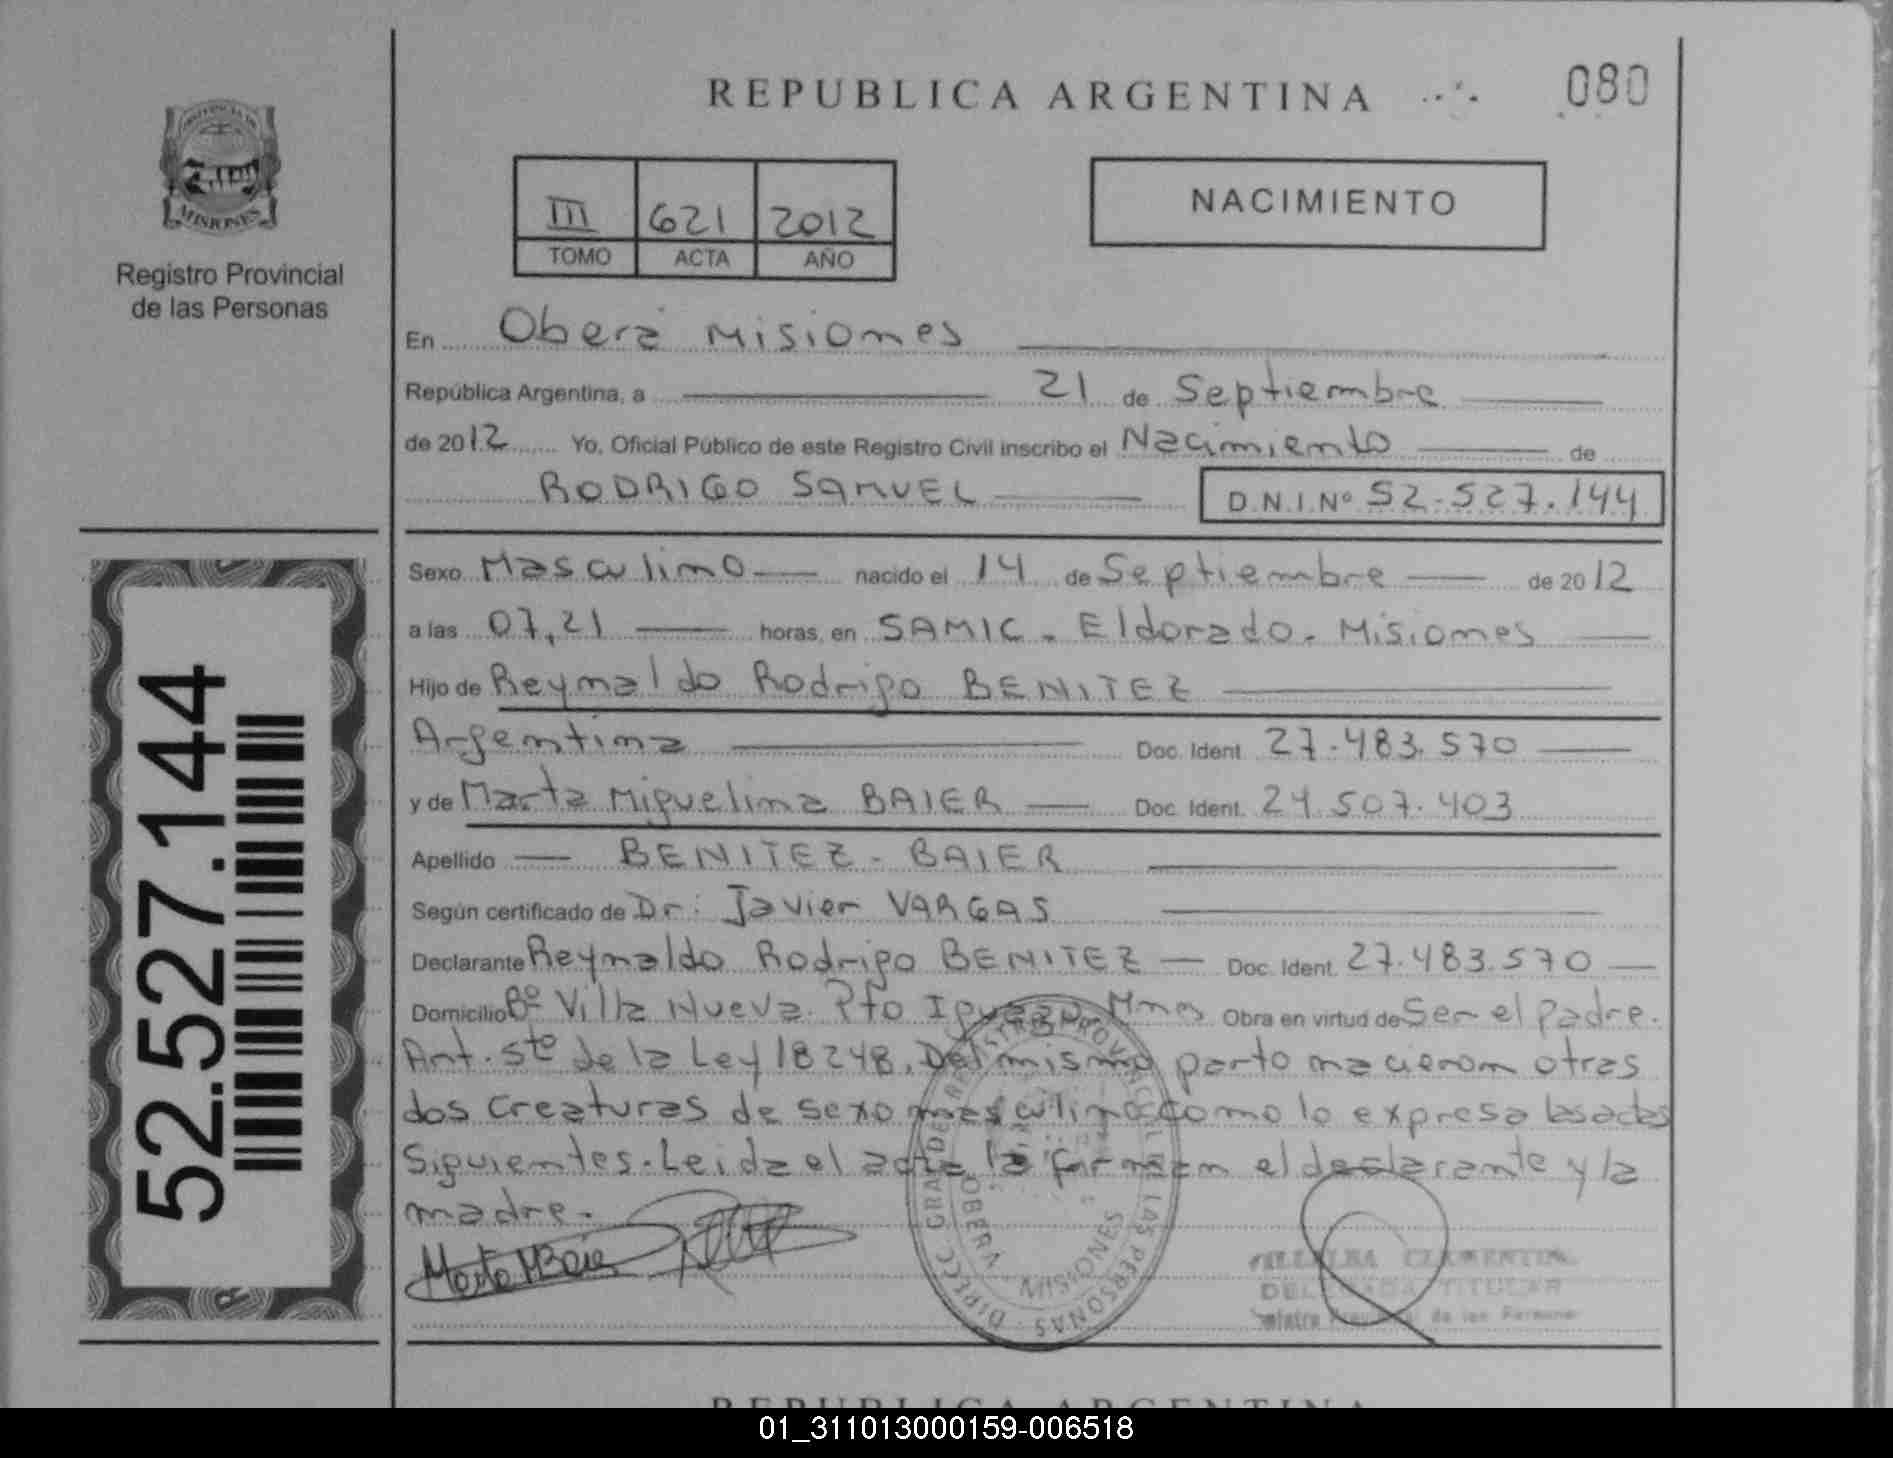 REPUBLICA ARGENTINA
080
PROVINCIA DE
MISIONES
Registro Provincial
de las Personas
III 621 2012
TOMO ACTA AÑO
NACIMIENTO
En Oberá Misiones
República Argentina, a 21 de Septiembre
de 2012 Yo, Oficial Público de este Registro Civil inscribo el Nacimiento de
RODRIGO SAMUEL D.N.I.Nº 52.527.144
Sexo Masculino nacido el 14 de Septiembre de 2012
a las 07,21 horas, en SAMIC - Eldorado. Misiones
Hijo de Reynaldo Rodrigo BENITEZ
Argentina Doc. Ident. 27.483.570
y de Marta Miguelina BAIER Doc. Ident. 24.507.403
Apellido BENITEZ - BAIER
Según certificado de Dr: Javier VARGAS
Declarante Reynaldo Rodrigo BENITEZ Doc. Ident. 27.483.570
Domicilio Bº Villa Nueva. Pto Iguazú. Mnes Obra en virtud de Ser el padre.
Art. 5to de la Ley 18248. Del mismo parto nacieron otras
dos creaturas de sexo masculino como lo expresa las actas
Siguientes. Leida el acta la firman el declarante y la
madre.
Marta M Baier
DIRECC. GRAL. DE REGISTRO PROVINCIAL DE LAS PERSONAS
OBERA MISIONES
VILLALBA CLEMENTINA
DELEGADA TITULAR
Registro Provincial de las Personas
52.527.144
REPUBLICA ARGENTINA
01_311013000159-006518